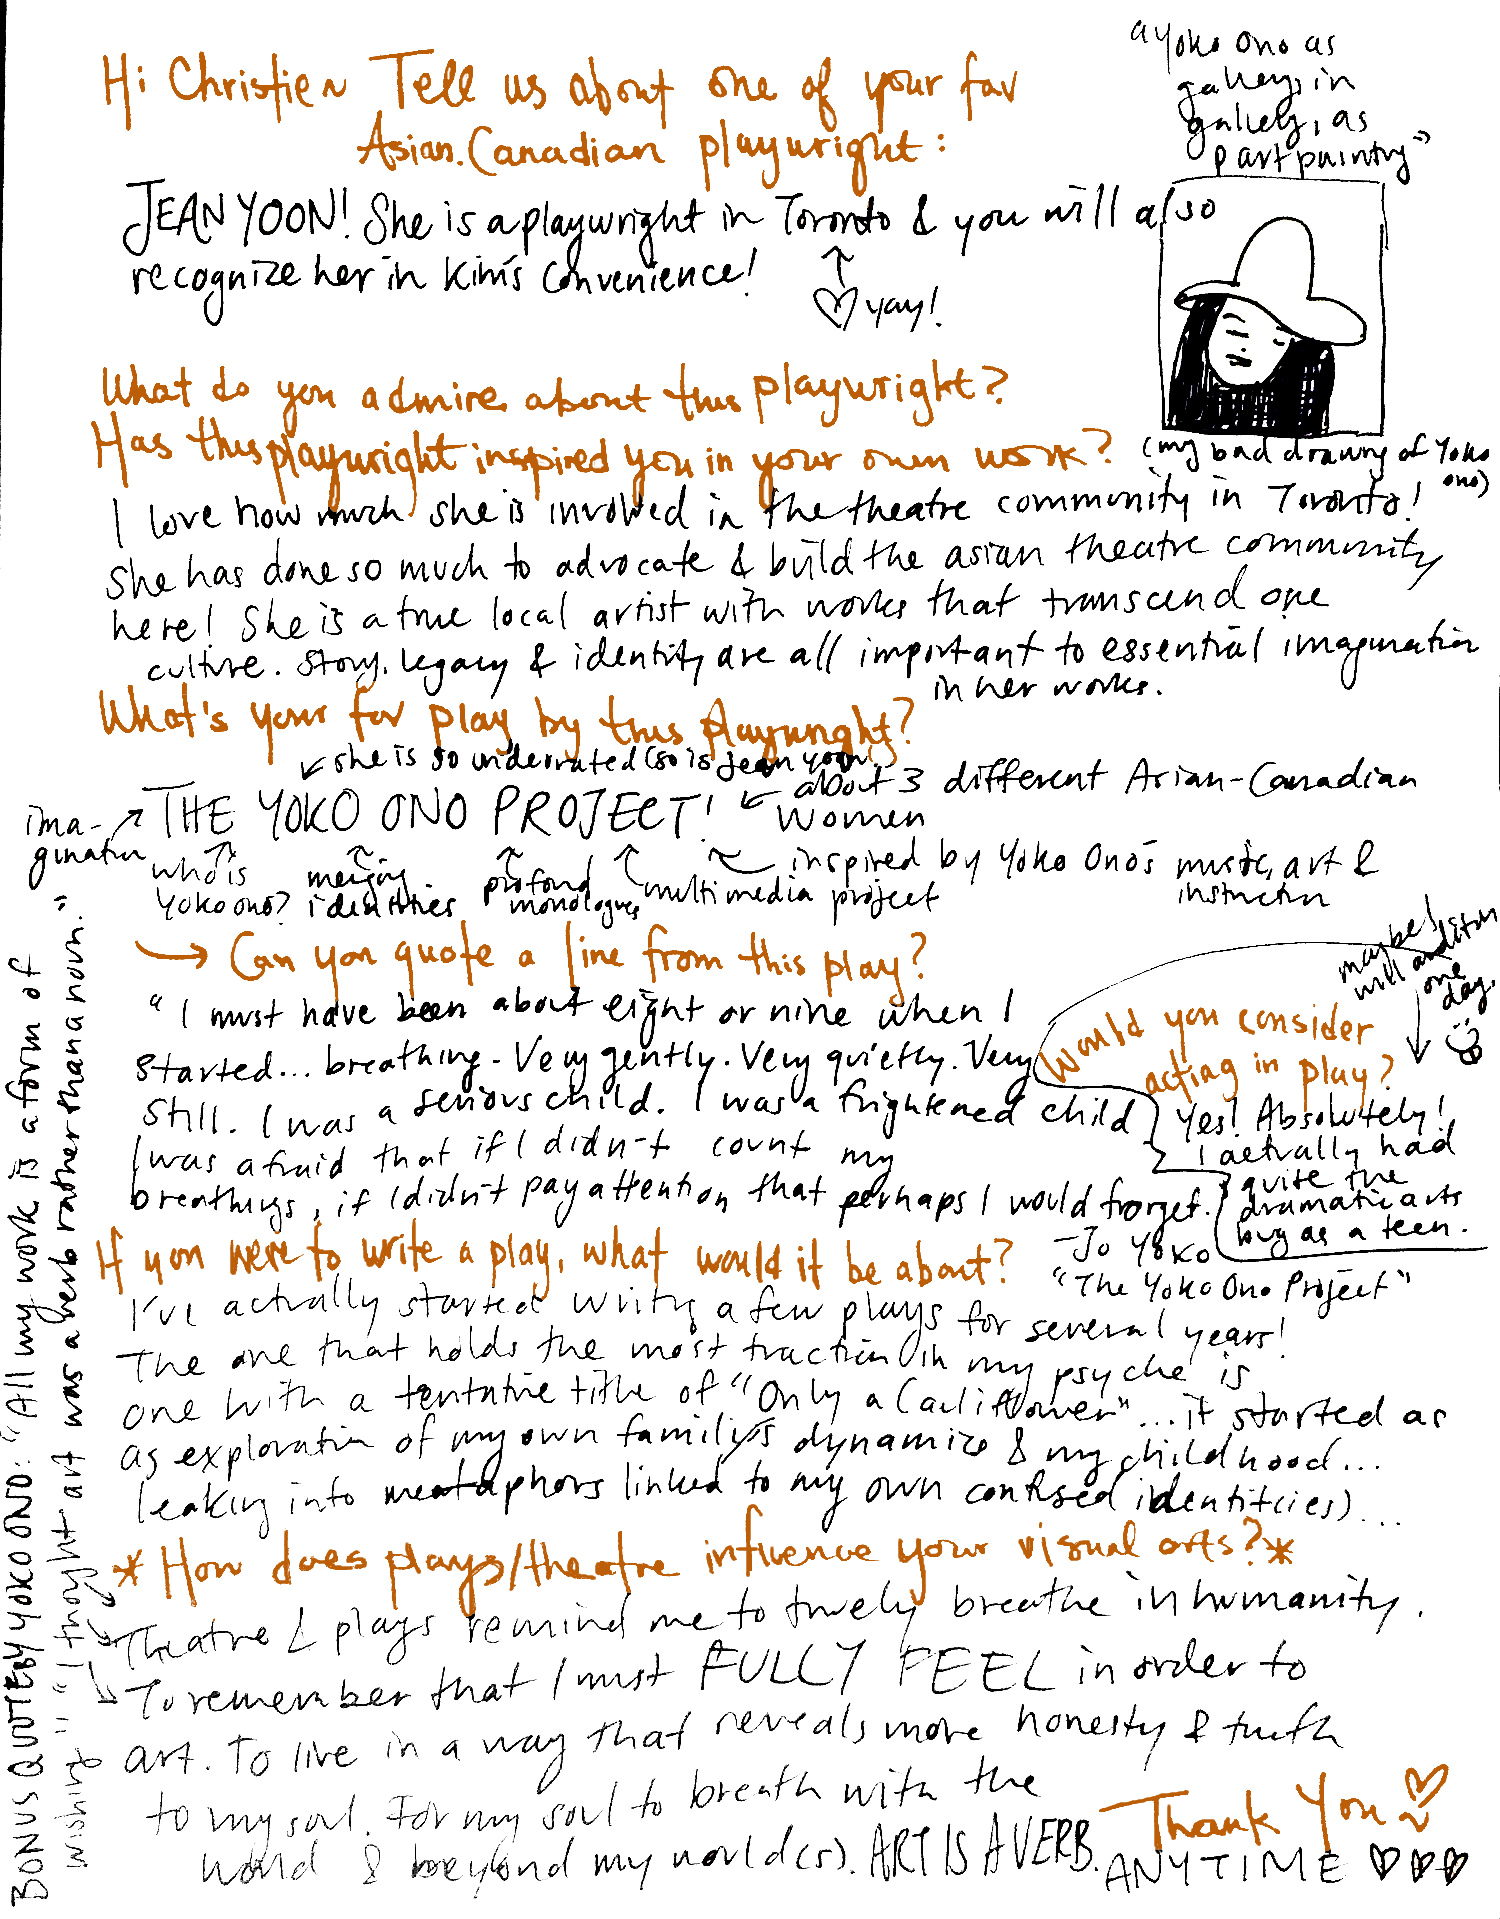 Hi Christie~ Tell us about one of your fav
Asian-Canadian playwright:
"Yoko Ono as
gallery, in
gallery, as
part painting"
JEAN YOON! She is a playwright in Toronto & you will also
recognize her in Kim's Convenience!
♡ yay!
(my bad drawing of Yoko
Ono)
What do you admire about this playwright?
Has this playwright inspired you in your own work?
I love how much she is involved in the theatre community in Toronto!
She has done so much to advocate & build the asian theatre community
here! She is a true local artist with works that transcend one
culture. Story, legacy & identity are all important to essential imagination
in her works.
What's your fav play by this playwright?
she is so underrated (so is Jean Yoon)
THE YOKO ONO PROJECT!
about 3 different Asian-Canadian
Women
ima-
gination
who is
Yoko Ono?
merging
identities
profound
monologues
multimedia project
inspired by Yoko Ono's music, art &
instruction
Can you quote a line from this play?
"I must have been about eight or nine when I
started... breathing. Very gently. Very quietly. Very
still. I was a serious child. I was a frightened child
I was afraid that if I didn't count my
breathings, if I didn't pay attention that perhaps I would forget.
-Jo Yoko
"The Yoko Ono Project"
Would you consider
acting in play?
maybe I
will audition
one
day.
Yes! Absolutely!
I actually had
quite the
dramatic arts
bug as a teen.
If you were to write a play, what would it be about?
I've actually started writing a few plays for several years!
The one that holds the most traction in my psyche is
one with a tentative title of "Only a Cauliflower"... it started as
as exploration of my own family's dynamics & my childhood...
leaking into metaphors linked to my own confused identit(ies)...
*How does plays/theatre influence your visual arts?*
Theatre & plays remind me to truely breathe in humanity.
To remember that I must FULLY FEEL in order to
art. To live in a way that reveals more honesty & truth
to my soul. For my soul to breath with the
world & beyond my world(s). ART IS A VERB.
Thank You ♡~
ANYTIME ♡♡♡
BONUS QUOTE BY YOKO ONO: "All my work is a form of
wishing" "I thought art was a verb rather than a noun."